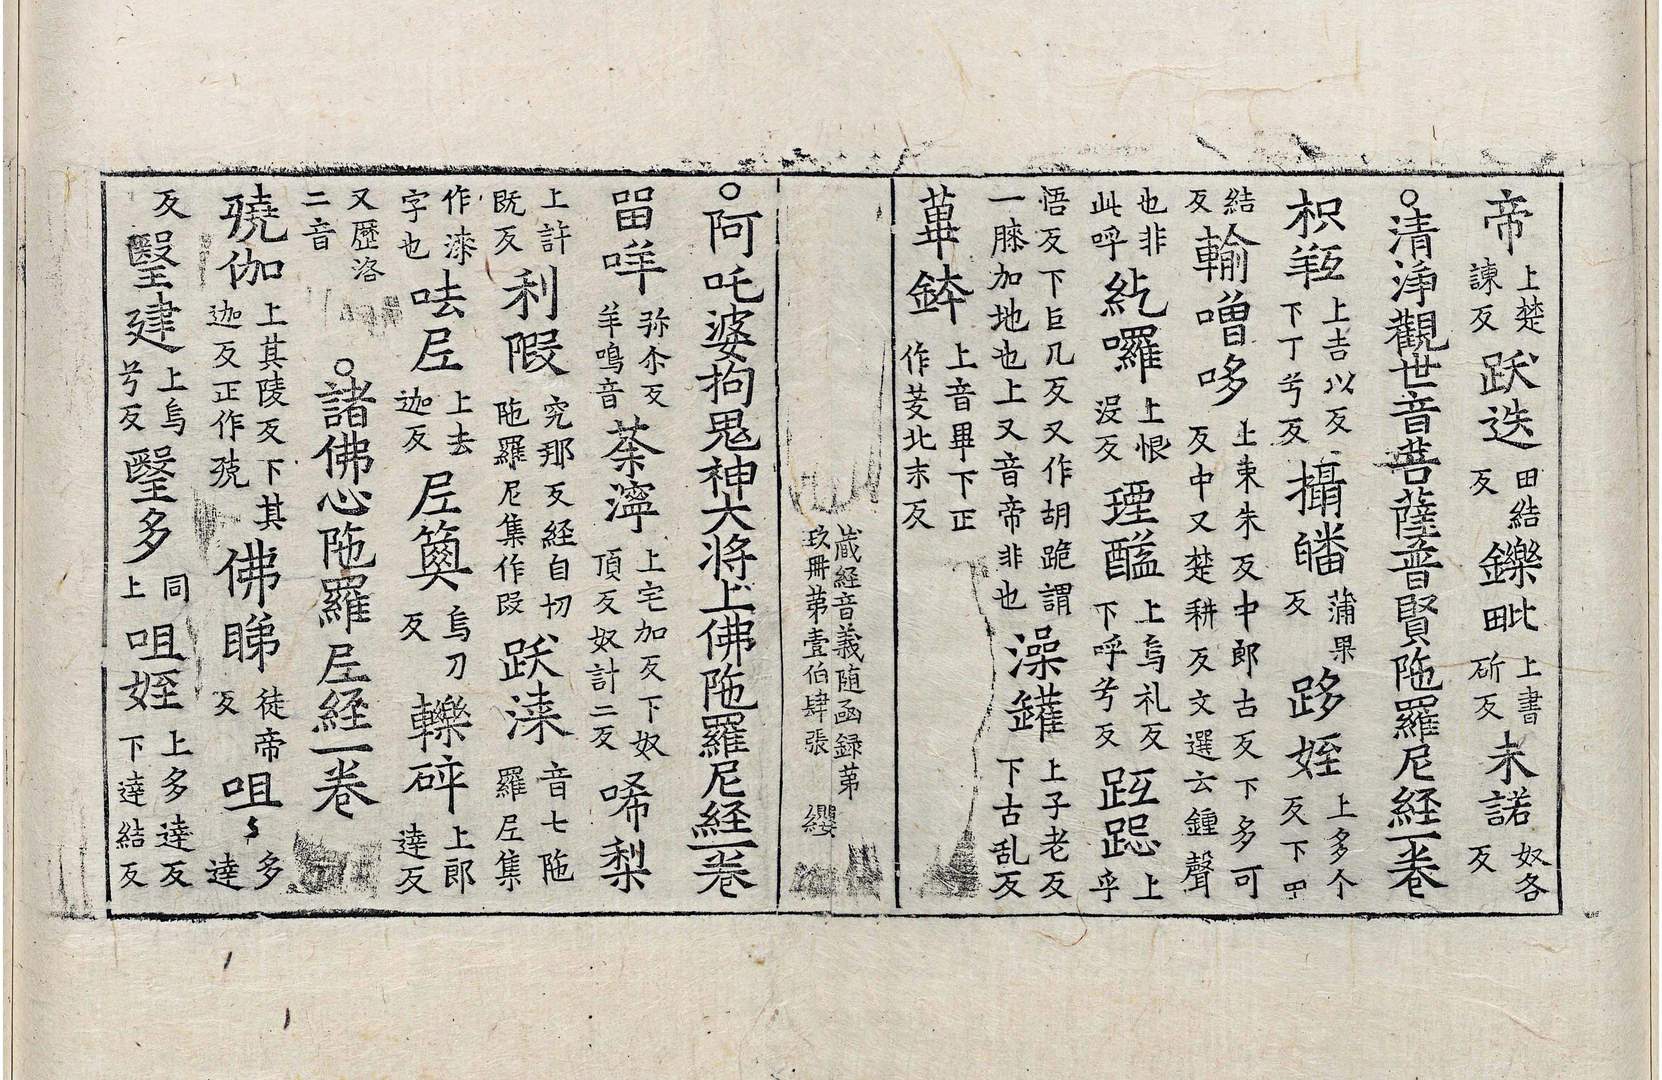 帝上楚諫反跃迭田結反鑠毗上書斫反未諾奴各反
○清淨觀世音菩薩普賢陁羅尼經一卷
枳𦍑上吉以反下丁兮反攝皤蒲果反跢姪上多个反下甲
結反輸噌哆上朿朱反中郎古反下多可反中又楚耕反文選云鍾聲
也非此呼紇囉上恨沒反瑿醯上烏礼反下呼兮反跽上
悟反下巨几反又作胡跪謂一膝加地也上又音帝非也澡罐上子老反下古乱反
蓽鉢上音畢下正作茇北末反
蔵経音義随函録苐玖冊苐壹伯肆張 纓
○阿吒婆拘鬼神大将上佛陁羅尼經一卷
㽞咩弥尒反羊鳴音荼濘上宅加反下奴頂反奴計二反唏梨
上許既反利㕢究那反経自切陁羅尼集作叚跃淶音七陁羅尼集
作漆字也呿尼上去迦反尼䉛烏刀反轢碎上郎達反
又歴洛二音 ○諸佛心陁羅尼経一卷
殑伽上其陵反下其迦反正作殑佛睇徒帝反咀多達
反瑿建上烏兮反瑿多同上咀姪上多達反下達結反